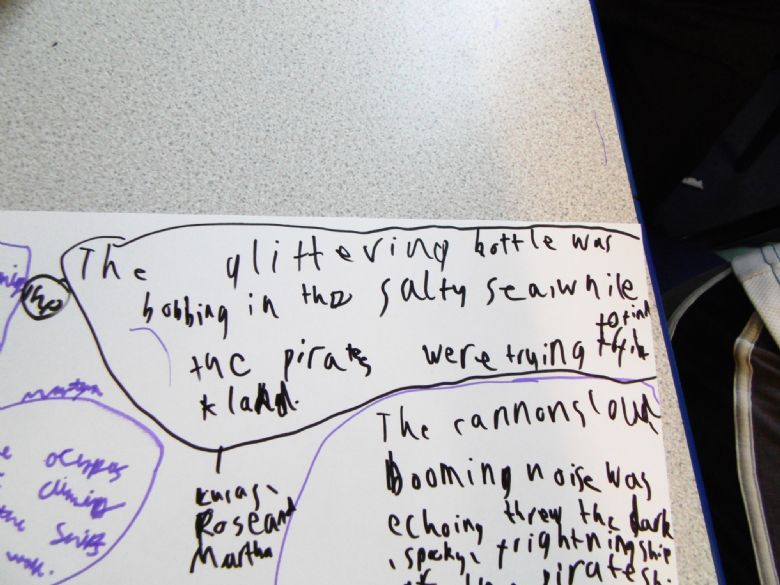 The glittering bottle was
bobbing in the salty sea, while
the pirates were trying to find
land.
The
Roseand
Martha
The cannons loud
booming noise was
echoing threw the dark
, spooky, frightning ship
of the pirates
the
climing
the